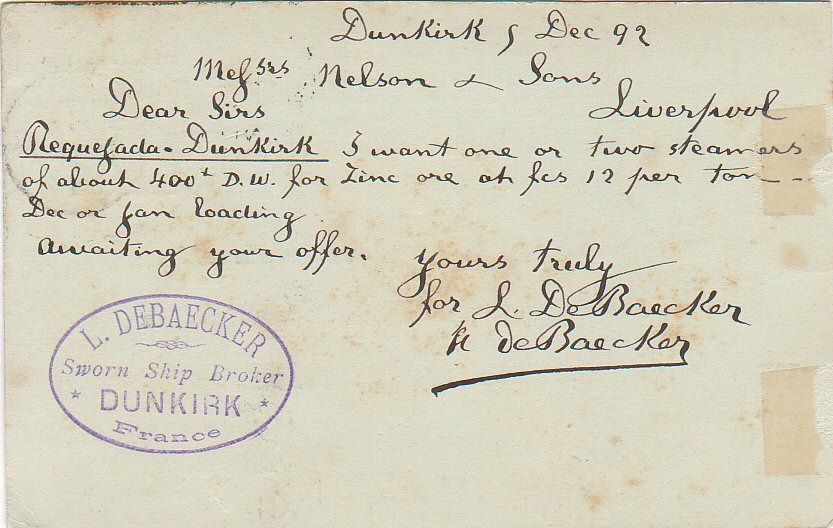 Dunkirk 5 Dec 92
Messrs Nelson & Sons
Dear Sirs Liverpool
Requejada - Dunkirk I want one or two steamers
of about 400t D.W. for Zinc ore at fcs 12 per ton -
Dec or Jan loading
Awaiting your offer.
yours truly
for L. DeBaecker
deBaecker
L. DEBAECKER
Sworn Ship Broker
* DUNKIRK *
France